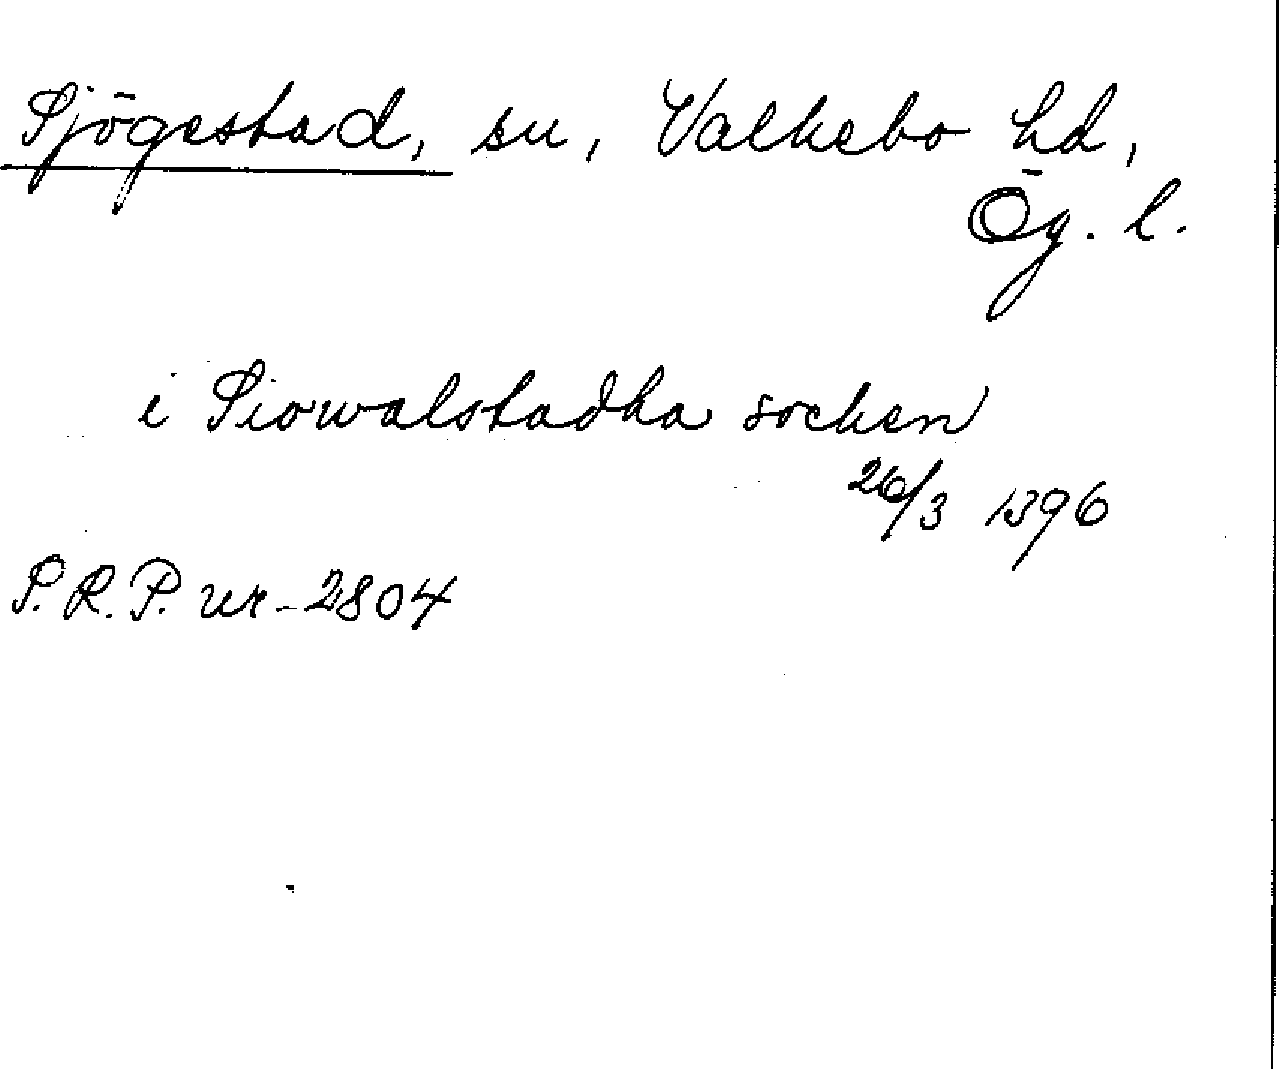 Sjögestad, sn, Valkebo hd,
Ög. l.
i Siowalstadha socken
26/3 1396
S.R.P. nr 2804